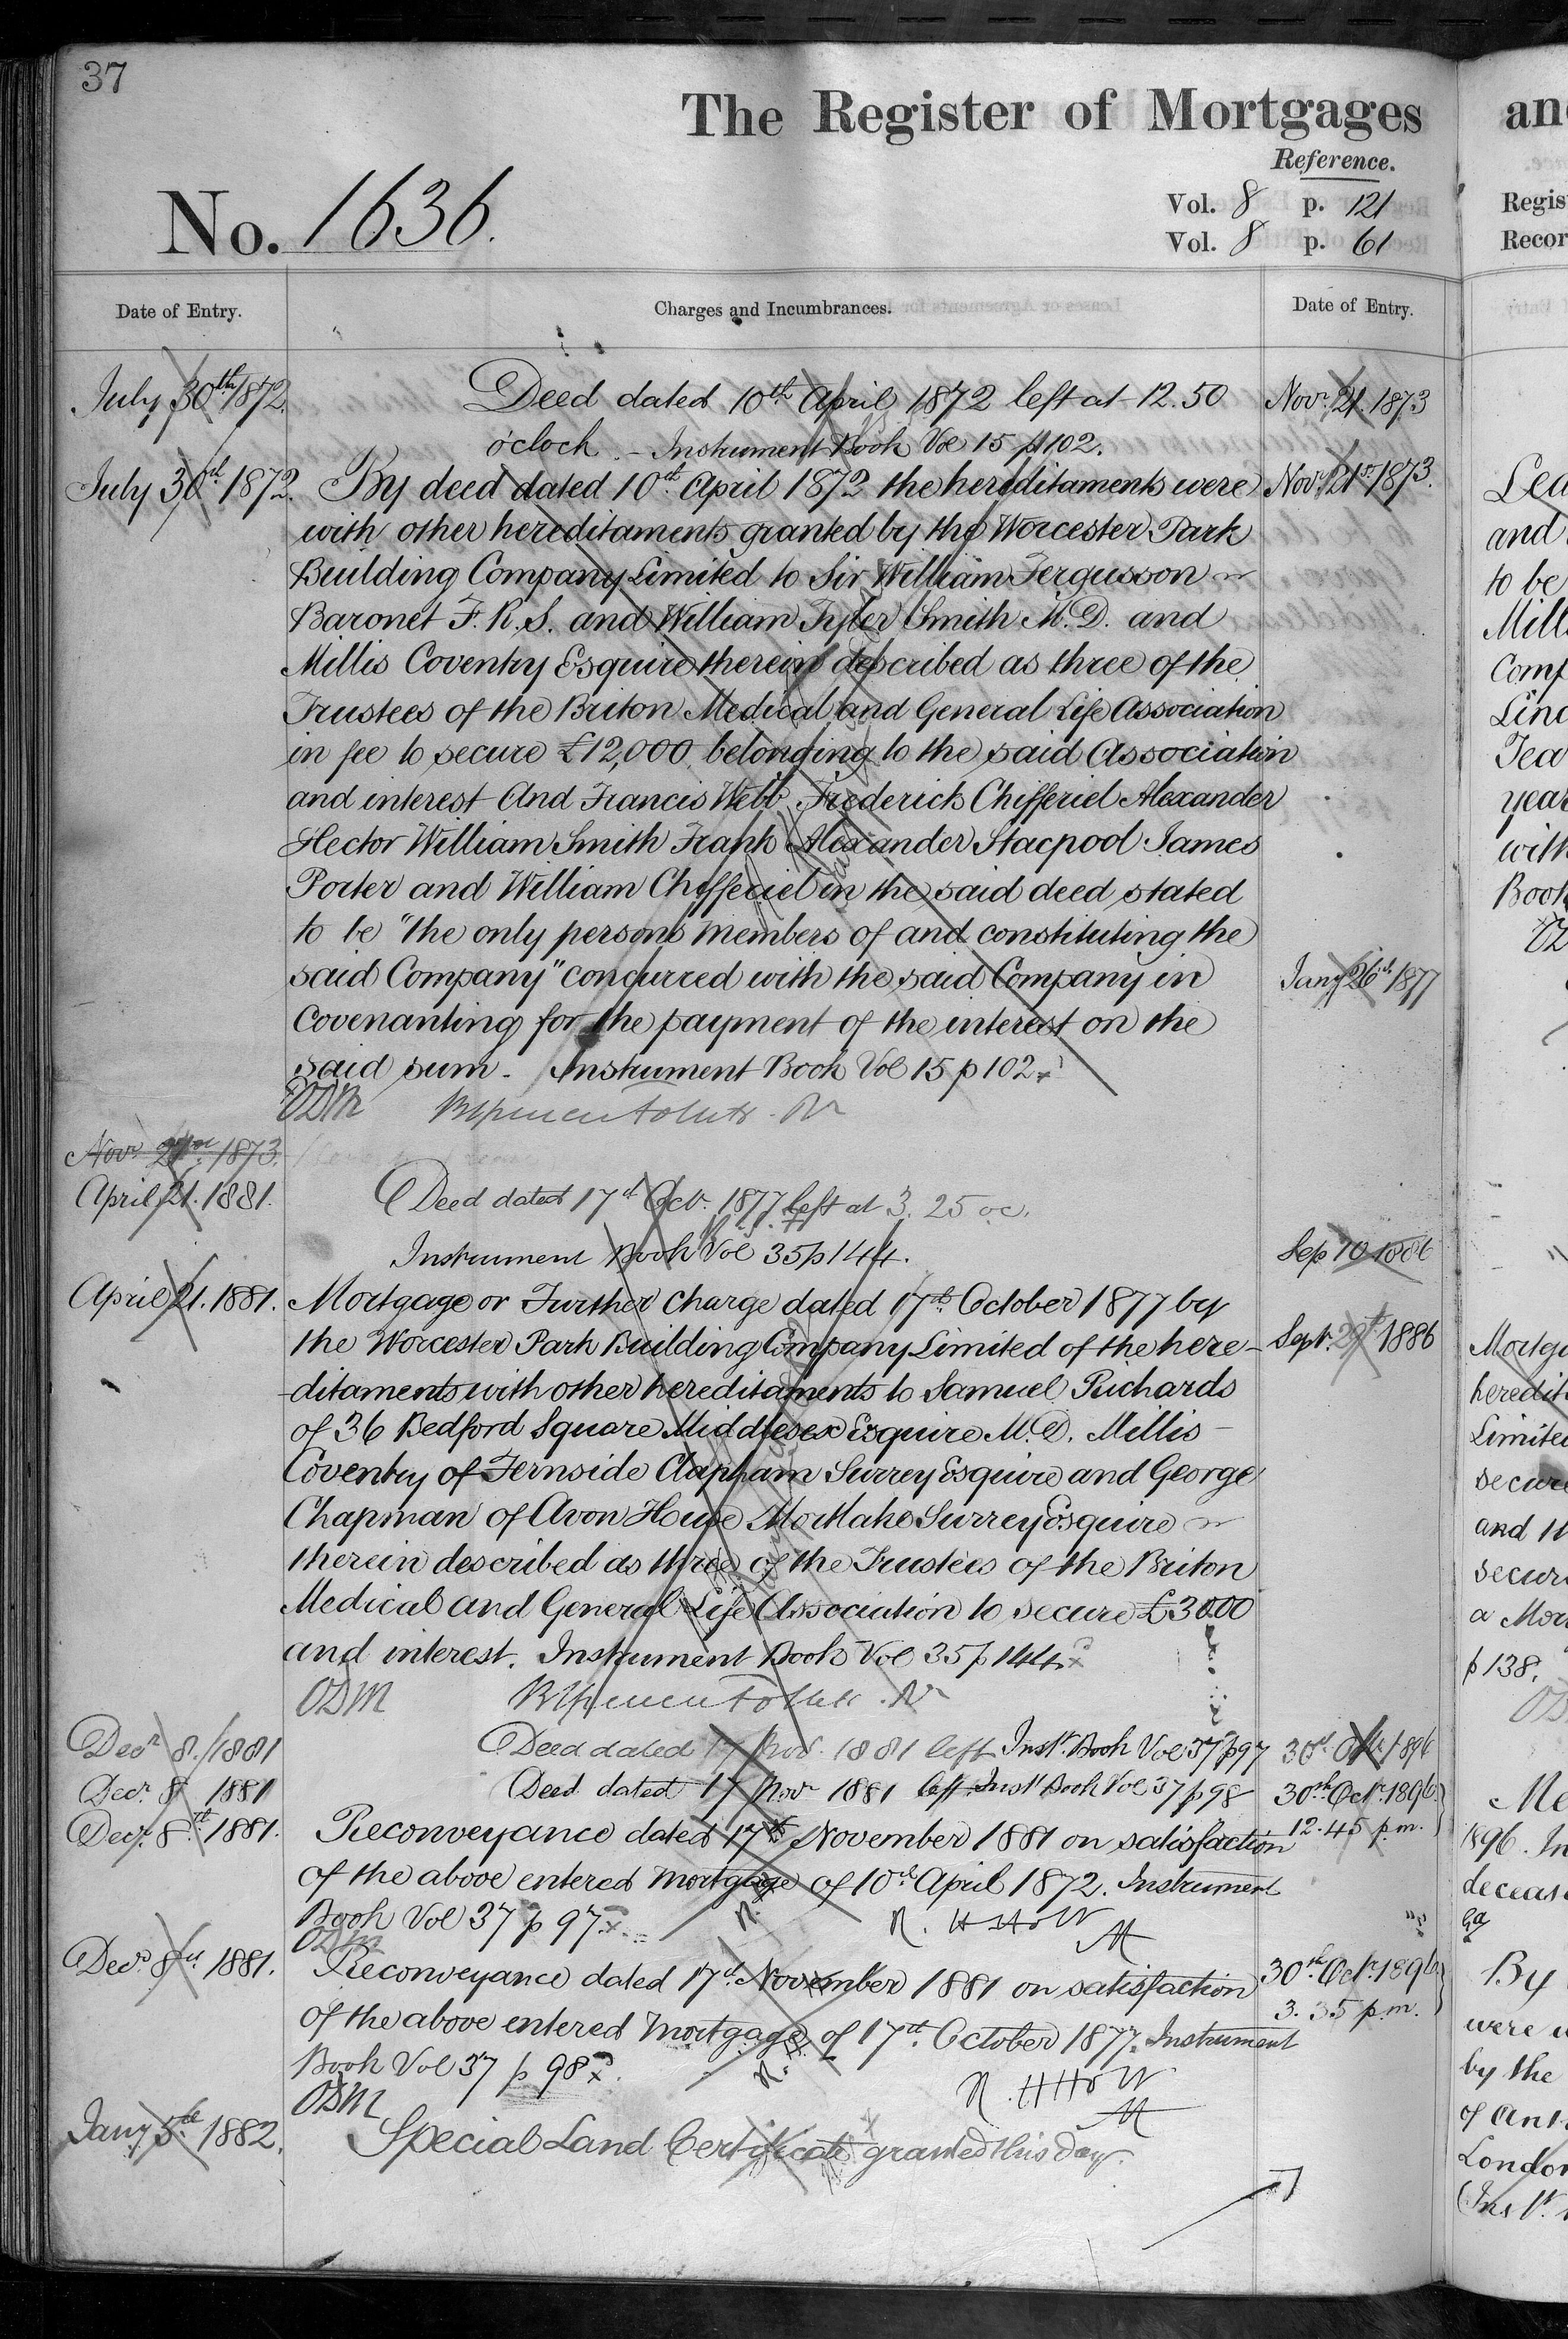 37
The Register of Mortgages
Reference.
No. 1636.
Vol. 8 p. 121
Vol. 8 p. 61
Date of Entry.
Charges and Incumbrances.
Date of Entry.
July 30th 1872. Deed dated 10th April 1872 left at 12.50 Novr. 21. 1873
o'clock. - Instrument Book Vol 15 p 102.
July 30th 1872. By deed dated 10th April 1872 the hereditaments were Novr. 21st 1873.
with other hereditaments granted by the Worcester Park
Building Company Limited to Sir William Fergusson
Baronet F.R.S. and William Tyler Smith M.D. and
Millis Coventry Esquire therein described as three of the
Trustees of the Briton Medical and General Life Association
in fee to secure £12,000 belonging to the said Association
and interest And Francis Webb Frederick Chifferiel Alexander
Hector William Smith Frank Alexander Stacpool James
Porter and William Chifferiel in the said deed stated
to be "the only persons members of and constituting the
said Company" concurred with the said Company in Jany 26th 1877
Covenanting for the payment of the interest on the
said sum. Instrument Book Vol 15 p 102.
ODM
Novr 21st 1873.
April 21. 1881. Deed dated 17th Oct. 1877 left at 3.25 oc.
Instrument Book Vol 35 p 144. Sep 10 1886
April 21. 1881. Mortgage or Further Charge dated 17th October 1877 by
the Worcester Park Building Company Limited of the here- Sept. 1886
-ditaments with other hereditaments to Samuel Richards
of 36 Bedford Square Middlesex Esquire M.D. Millis -
Coventry of Fernside Clapham Surrey Esquire and George
Chapman of Avon House Mortlake Surrey Esquire
therein described as three of the Trustees of the Briton
Medical and General Life Association to secure £3000
and interest. Instrument Book Vol 35 p 144.
ODM
Decr 8. 1881 Deed dated 17 Nov. 1881 left Inst. Book Vol 37 p 97 30th Octr. 1896
Decr. 8 1881 Deed dated 17 Novr 1881 left Inst Book Vol 37 p 98 30th Octr. 1896
12.45 p.m.
Decr. 8th 1881. Reconveyance dated 17th November 1881 on satisfaction
of the above entered Mortgage of 10th April 1872. Instrument
Book Vol 37 p 97
ODM
Decr 8th 1881. Reconveyance dated 17th November 1881 on satisfaction 30th Octr. 1896
3.35 p.m.
of the above entered Mortgage of 17th October 1877. Instrument
Book Vol 37 p 98
ODM
Jany 5th 1882. Special Land Certificate granted this day.
an
Regis
Recor
Lea
and
to be
Mill
Comp
Linc
Tea
year
with
Book
Mortga
heredit
Limited
secure
and
secur
a Mor
p 138.
Me
1896. In
deceas
By
were
by the
of Ant
London
(Inst.